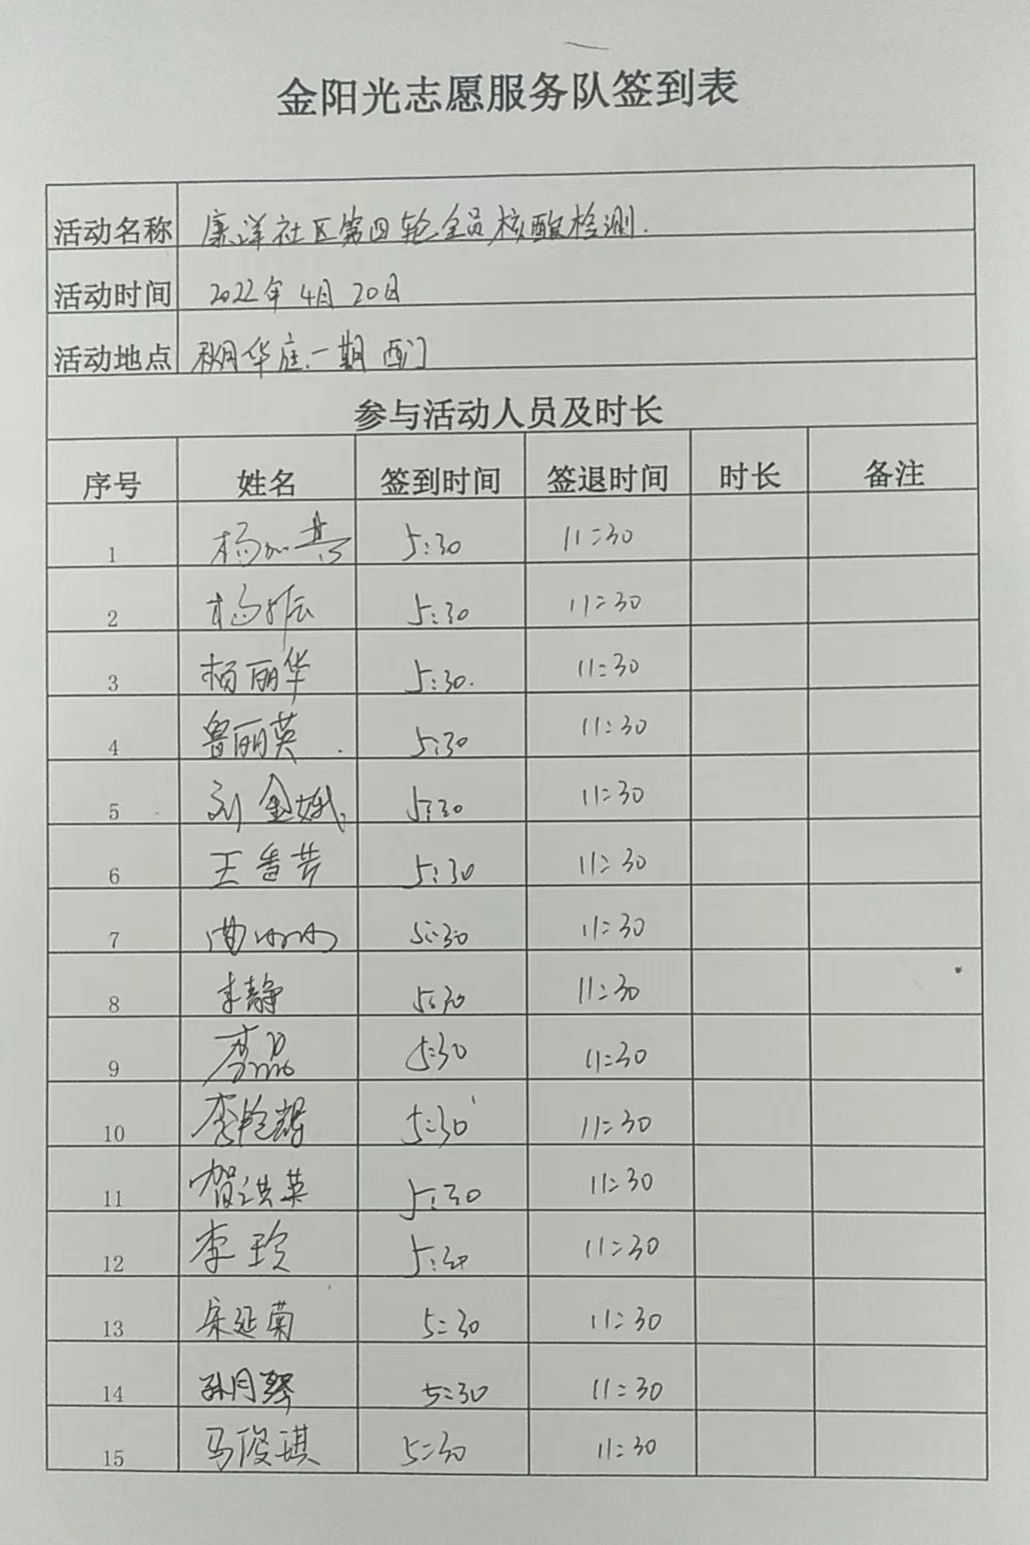 金阳光志愿服务队签到表
活动名称 康洋社区第四轮全员核酸检测.
活动时间 2022年4月20日
活动地点 秋月华庭一期西门
参与活动人员及时长
序号 姓名 签到时间 签退时间 时长 备注
1 杨 5:30 11:30
2 杨振 5:30 11:30
3 杨丽华 5:30. 11:30
4 鲁丽英 5:30 11:30
5 刘金娥 5:30 11:30
6 王香芳 5:30 11:30
7 曲 5:30 11:30
8 李静 5:30 11:30
9 李磊 5:30 11:30
10 李艳 5:30 11:30
11 贺洪英 5:30 11:30
12 李玲 5:30 11:30
13 宋延菊 5:30 11:30
14 孙月琴 5:30 11:30
15 马俊琪 5:30 11:30